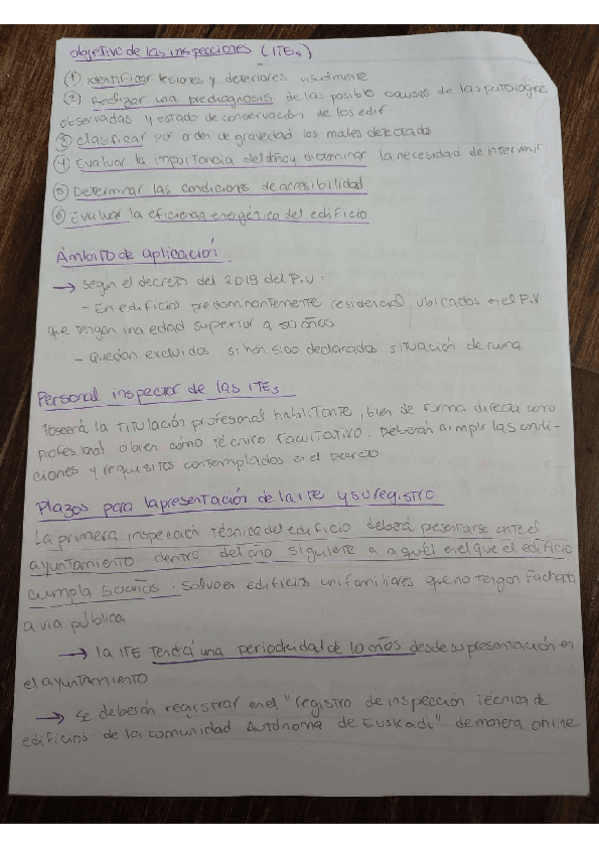 Objetivo de las inspecciones (ITEs)
① Identificar lesiones y deteriores visualmente
② Realizar una prediagnosis de las posible causas de las patologias
observadas y estado de conservación de los edif
③ clasificar por orden de gravedad los males detectado
④ Evaluar la importancia del daño y dictaminar la necesidad de intervenir
⑤ Determinar las condiciones de accesibilidad
⑥ Evaluar la eficiencia energética del edificio
Ámbito de aplicación
→ Según el decreto del 2019 del P.V:
- En edificios predominantemente residencial ubicados en el P.V
que tengan una edad superior a 50 años
- Quedan excluidos si han sido declarados situación de ruina
Personal inspector de las ITEs
Poseerá la titulación profesional habilitante, bien de forma directa como
profesional o bien como técnico facultativo. Deberán cumplir las condi-
ciones y requisitos contemplados en el Decreto
Plazos para la presentación de la ITE y su registro
La primera inspección técnica del edificio deberá presentarse ante el
ayuntamiento dentro del año siguiente a aquél en el que el edificio
cumpla 50 años. Salvo en edificios unifamiliares que no tengan fachada
a via pública
→ la ITE tendrá una periodicidad de 10 años desde su presentación en
el ayuntamiento
→ se deberán registrar en el "registro de inspección técnica de
edificios de la comunidad Autónoma de Euskadi" de manera online